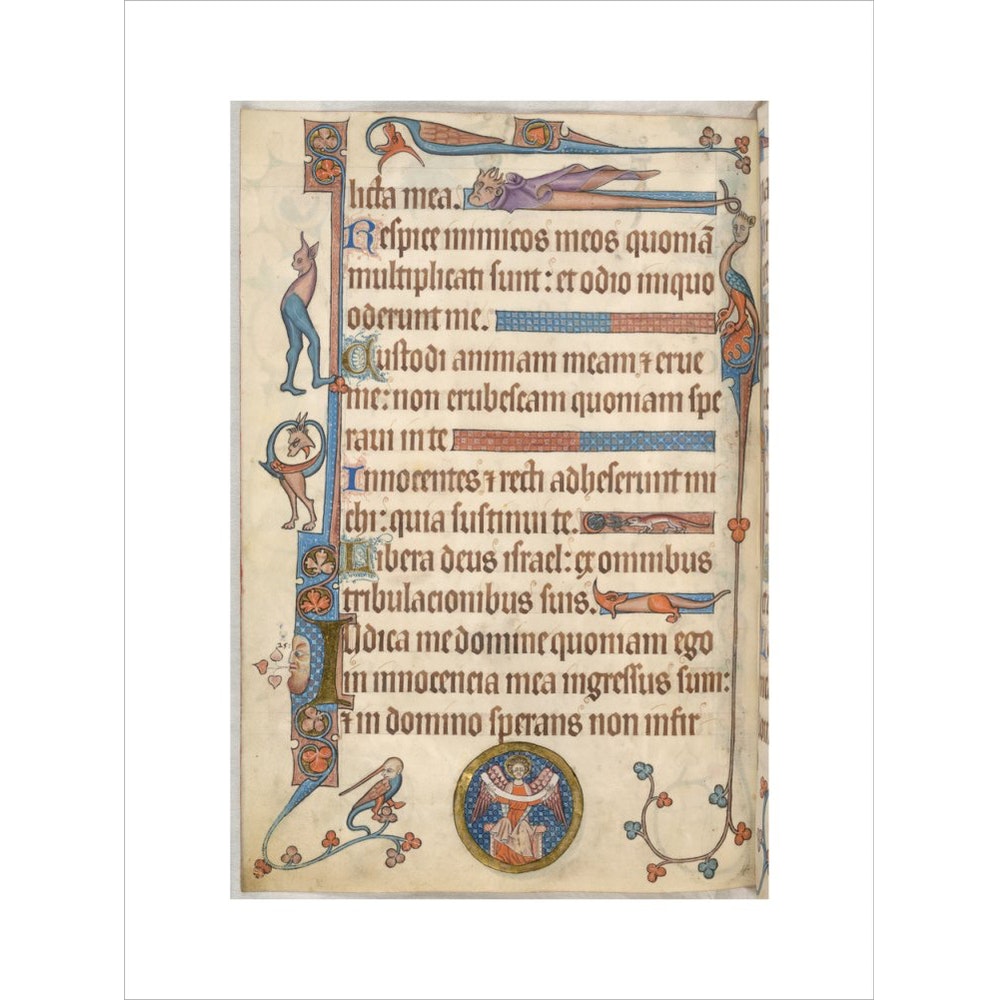 licta mea.
Respice inimicos meos quoniā
multiplicati sunt : et odio iniquo
oderunt me.
Custodi animam meam ⁊ erue
me : non erubescam quoniam spe
raui in te
Innocentes ⁊ recti adheserunt mi
chi : quia sustinui te.
Libera deus israel : ex omnibus
tribulacionibus suis.
Iudica me domine quoniam ego
in innocencia mea ingressus sum :
⁊ in domino sperans non infir